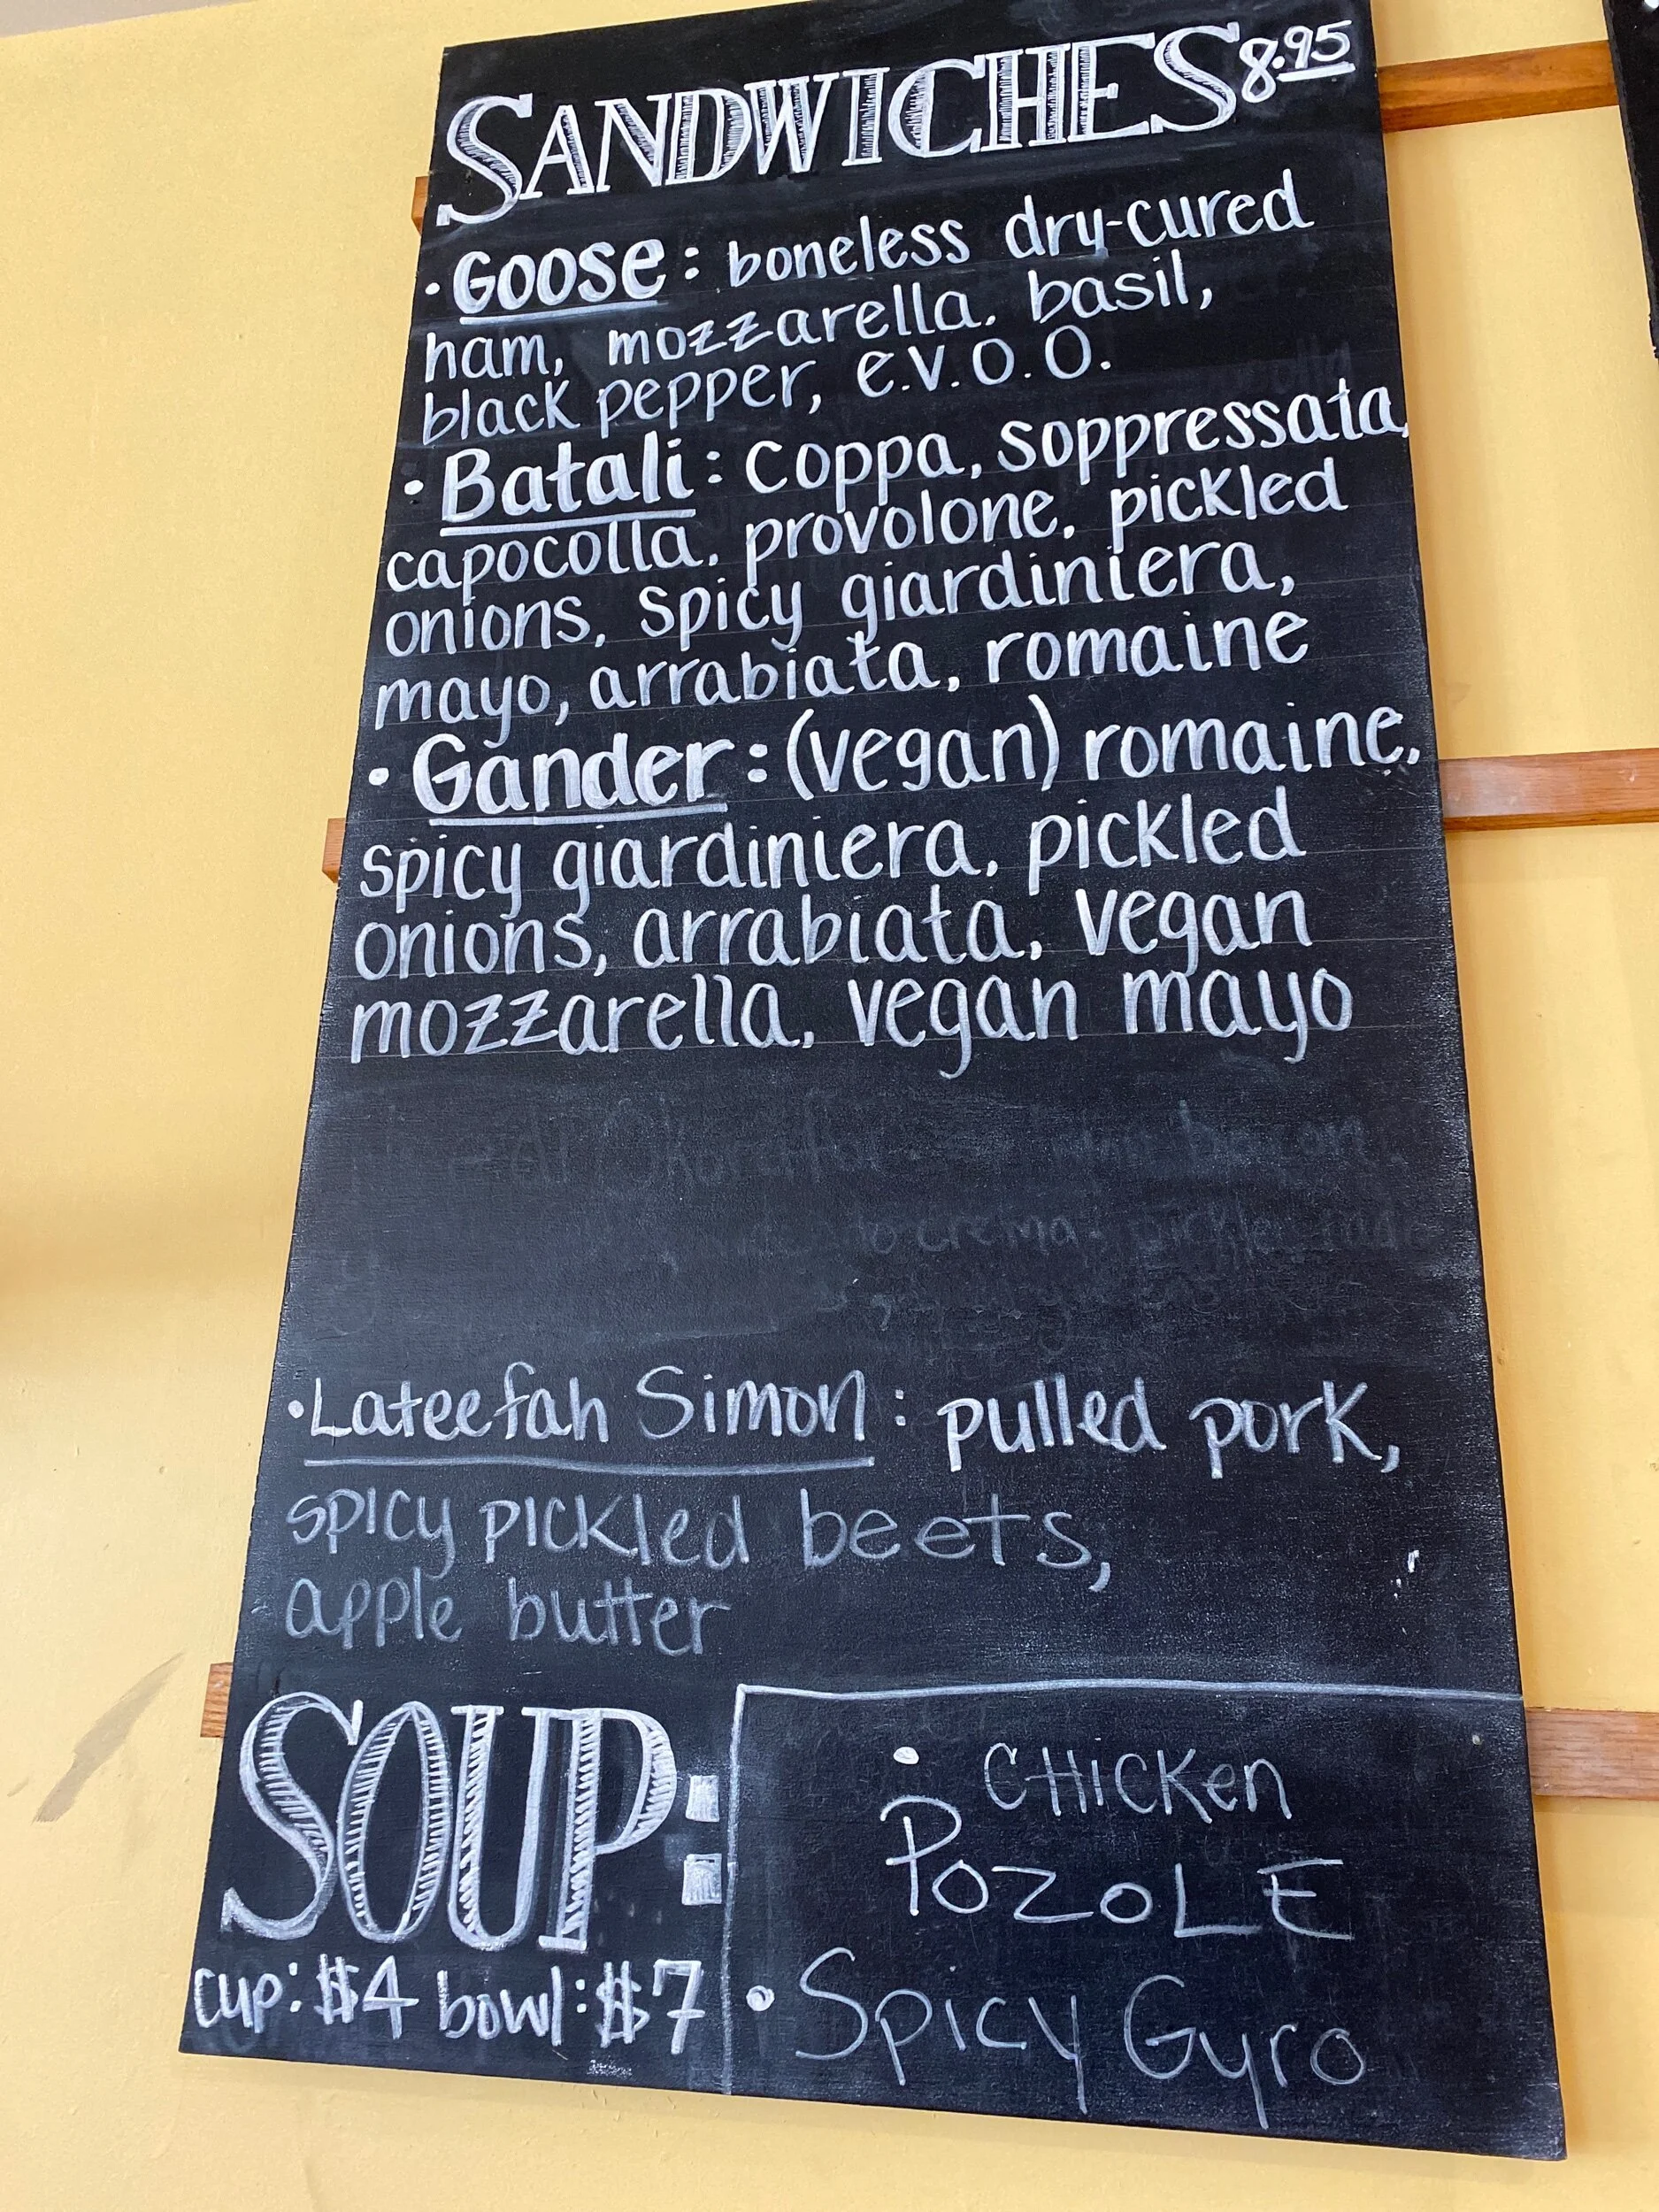 SANDWICHES 8.95
• Goose: boneless dry-cured
ham, mozzarella, basil,
black pepper, e.v.o.o.
• Batali: coppa, soppressata,
capocolla, provolone, pickled
onions, spicy giardiniera,
mayo, arrabiata, romaine
• Gander: (vegan) romaine,
spicy giardiniera, pickled
onions, arrabiata, vegan
mozzarella, vegan mayo
crema,
• Lateefah Simon: pulled pork,
spicy pickled beets,
apple butter
SOUP:
cup: $4 bowl: $7
• CHicKen
POZOLE
• Spicy Gyro